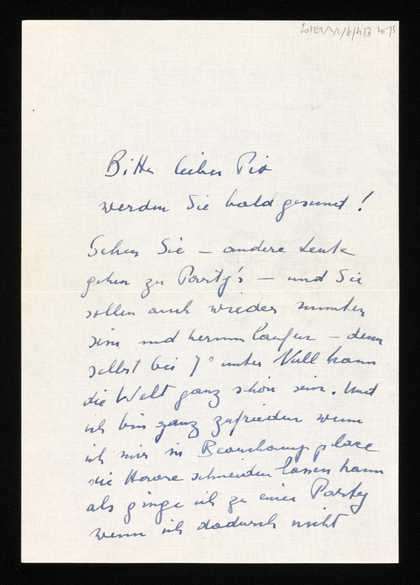 Bitte lieber Pio
werden Sie bald gesund!
Sehen Sie – andere Leute
gehen zu Party's – und Sie
sollen auch wieder munter
sein und herum laufen – denn
selbst bei 7° unter Null kann
die Welt ganz schön sein. Und
ich bin ganz zufrieden wenn
ich mir in Beauchamp place
die Haare schneiden lassen kann
als ginge ich zu einer Party
wenn ich dadurch nicht